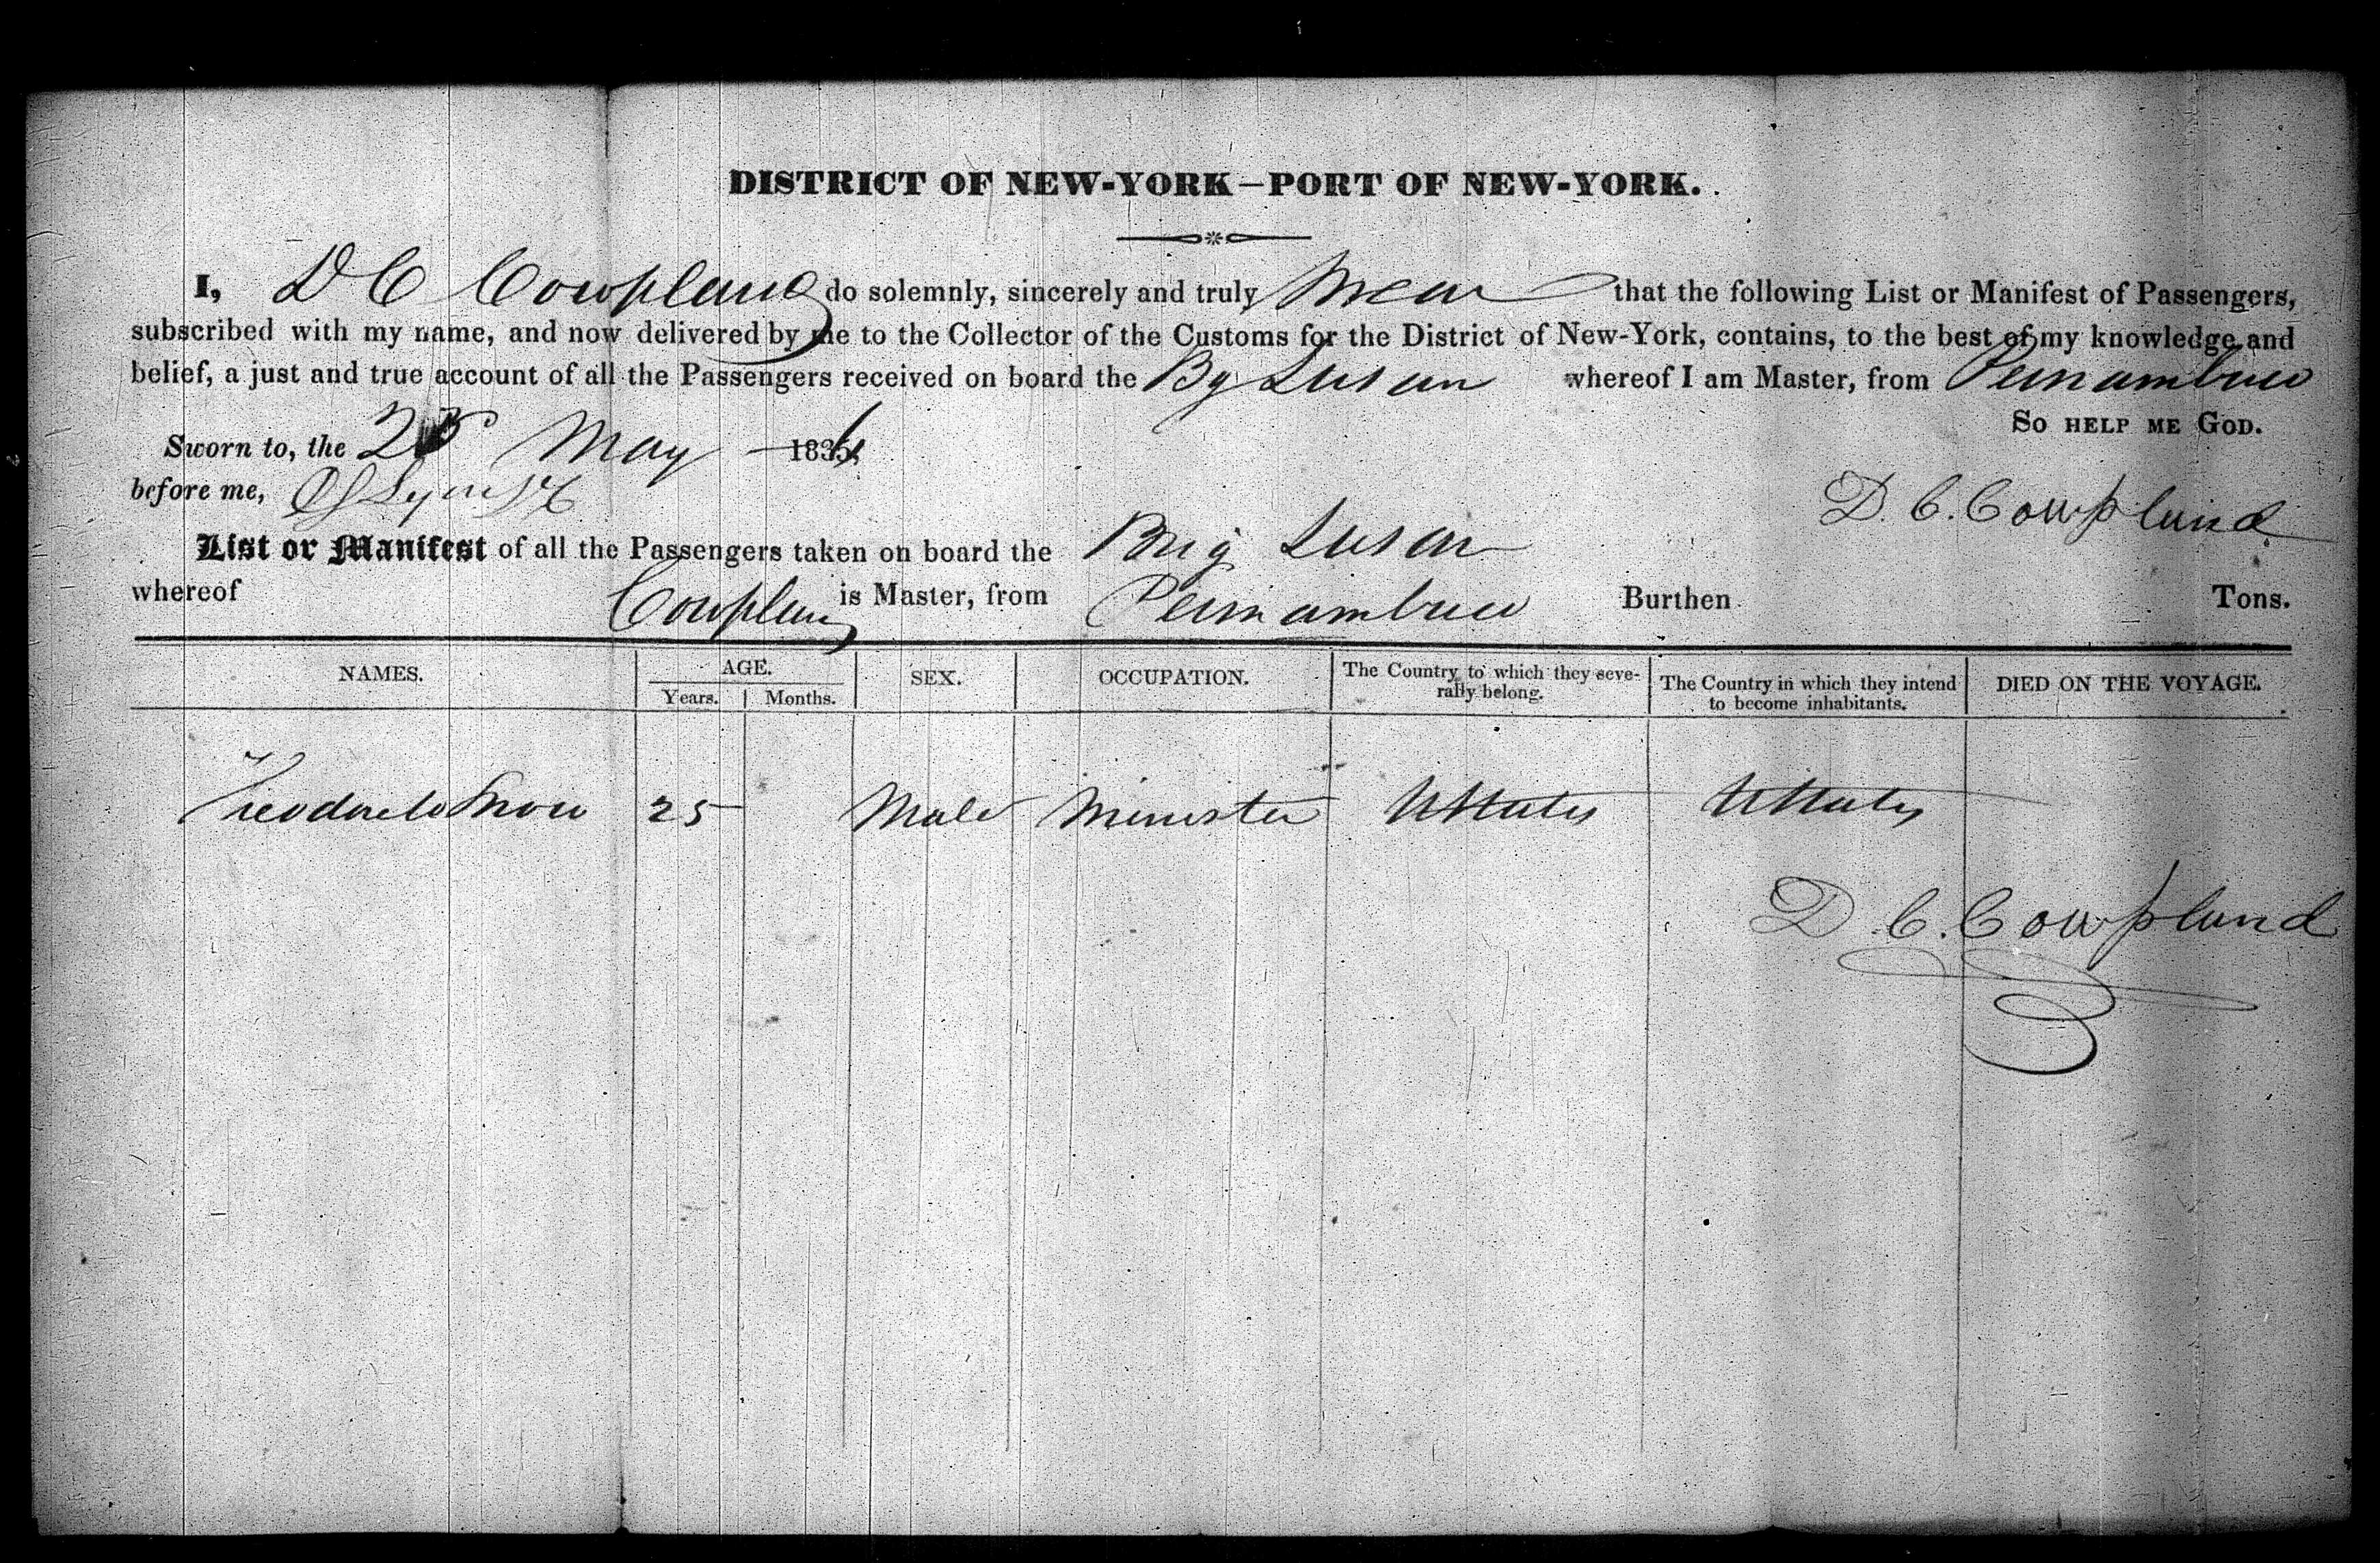 DISTRICT OF NEW-YORK—PORT OF NEW-YORK.
I, D C Cowpland do solemnly, sincerely and truly swear that the following List or Manifest of Passengers,
subscribed with my name, and now delivered by me to the Collector of the Customs for the District of New-York, contains, to the best of my knowledge and
belief, a just and true account of all the Passengers received on board the Bg Susan whereof I am Master, from Pernambuco
SO HELP ME GOD.
Sworn to, the 25 May 1836
before me,
D. C. Cowpland
List or Manifest of all the Passengers taken on board the Brig Susan
whereof Cowpland is Master, from Pernambuco Burthen Tons.
NAMES. AGE. SEX. OCCUPATION. The Country to which they seve- The Country in which they intend DIED ON THE VOYAGE.
Years. Months. rally belong. to become inhabitants.
Snow 25 Male Minister UStates UStates
D. C. Cowpland